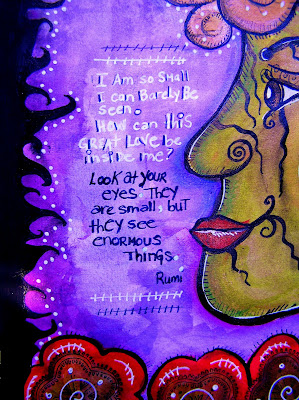 I Am so Small
i can Barely Be
seen.
How can this
GREAT Love be
inside me?
Look at your
eyes. They
are small, but
they see
enormous
things.
Rumi